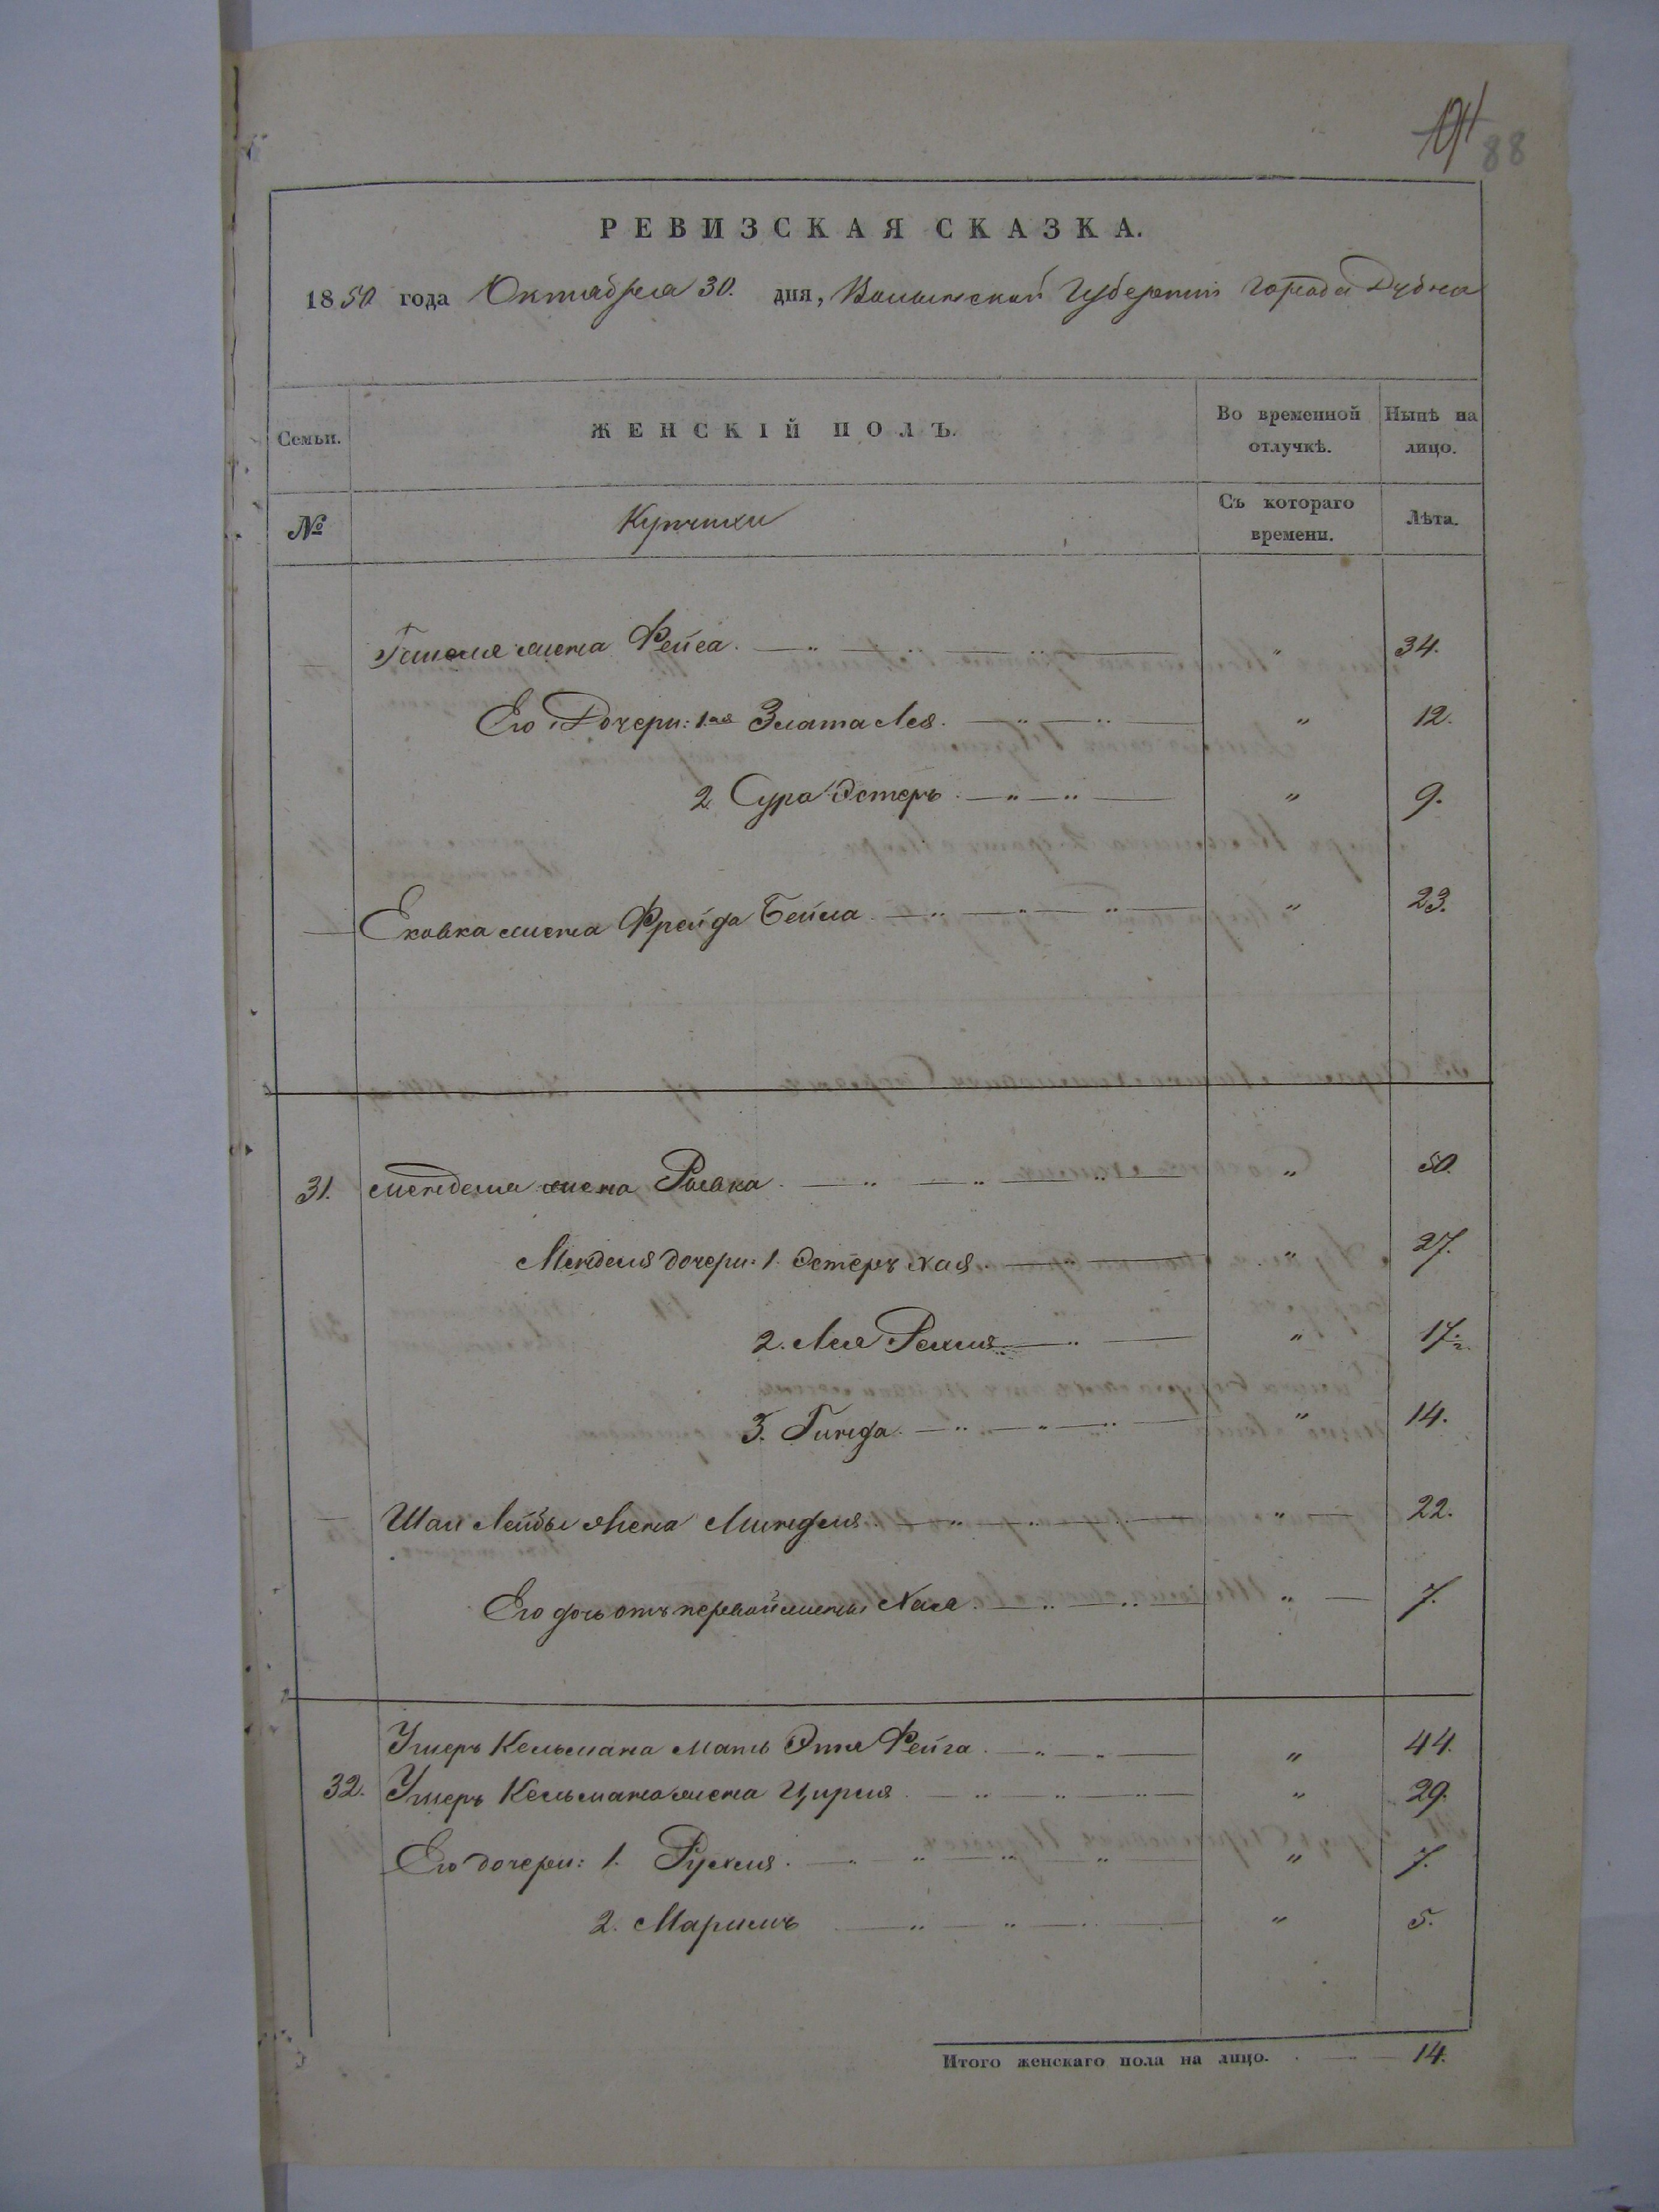 88
РЕВИЗСКАЯ СКАЗКА.
1850 года Октября 30. дня, Волынской Губернии Города Дубна
Семьи.
ЖЕНСКІЙ ПОЛЪ.
Во временной отлучкѣ.
Нынѣ на лицо.
№
Купчихи
Съ котораго времени.
Лѣта.
жена Фейга. " 34.
Его Дочери: 1ая Злата Лея. " 12.
2 Сура Эстеръ " 9.
Ековка жена Фрейда Бейла " 23.
31. Менделя жена Рывка " 50.
Менделя дочери: 1. Эстеръ Хая. " 27.
2. Лея Рехля " 17.
3. Гинда. " 14.
Шаи Лейбы жена Миндля. " 22.
Его дочь отъ первой жены Хая. " 7.
Умеръ Кельмана мать Этя Фейга. " 44.
32. Умеръ Кельмана жена Цирля " 29.
Его дочери: 1. Рухля. " 7.
2. Маримъ " 5.
Итого женскаго пола на лицо. 14.